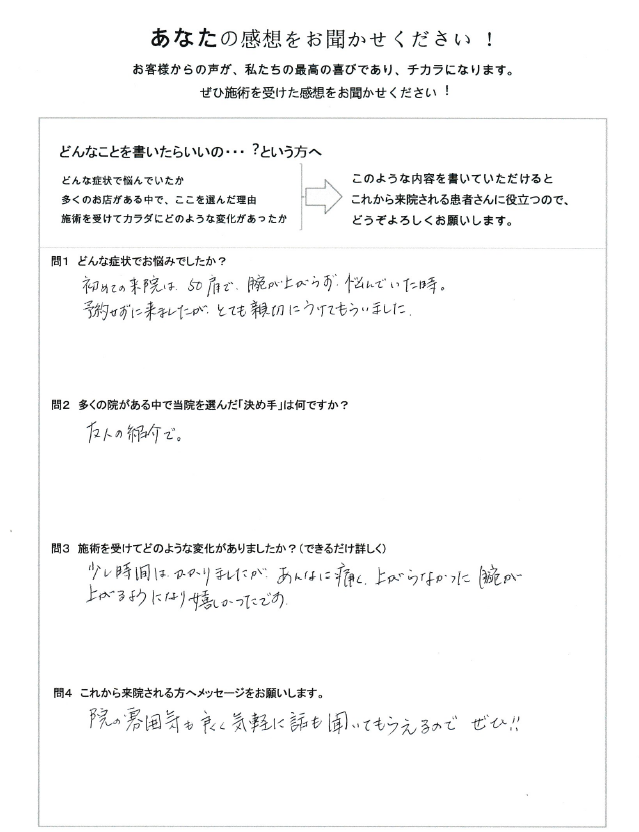 あなたの感想をお聞かせください！
お客様からの声が、私たちの最高の喜びであり、チカラになります。
ぜひ施術を受けた感想をお聞かせください！
どんなことを書いたらいいの・・・？という方へ
どんな症状で悩んでいたか
多くのお店がある中で、ここを選んだ理由
施術を受けてカラダにどのような変化があったか
このような内容を書いていただけると
これから来院される患者さんに役立つので、
どうぞよろしくお願いします。
問1 どんな症状でお悩みでしたか？
初めての来院は、50肩で、腕が上がらず、悩んでいた時。
予約せずに来ましたが、とても親切にうけてもらいました。
問2 多くの院がある中で当院を選んだ「決め手」は何ですか？
友人の紹介で。
問3 施術を受けてどのような変化がありましたか？（できるだけ詳しく）
少し時間は、かかりましたが、あんなに痛く、上がらなかった腕が
上がるようになり嬉しかったです。
問4 これから来院される方へメッセージをお願いします。
院の雰囲気も良く気軽に話も聞いてもらえるので ぜひ!!